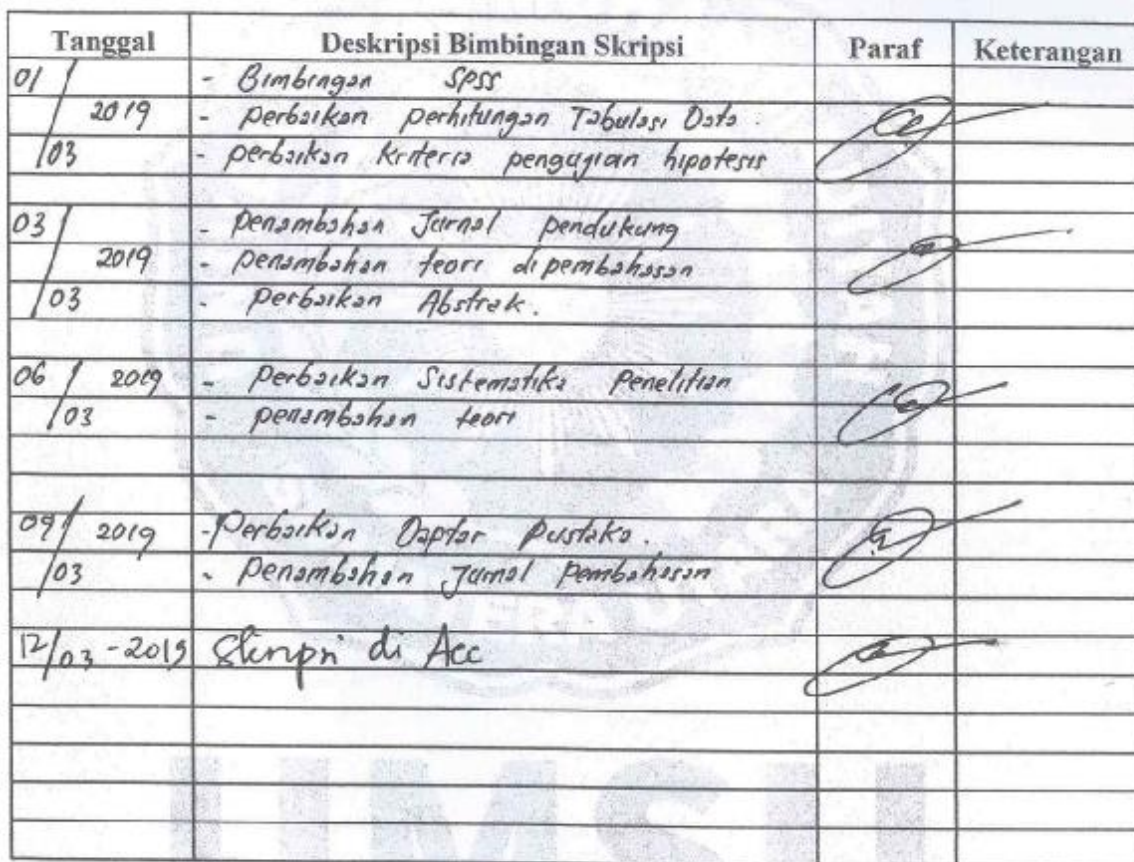 Tanggal Deskripsi Bimbingan Skripsi Paraf Keterangan
01/ - Bimbingan SPSS
2019 - perbaikan perhitungan Tabulasi Data.
/03 - perbaikan kriteria pengujian hipotesis
03/ - penambahan Jurnal pendukung
2019 - penambahan teori dipembahasan
/03 - perbaikan Abstrak.
06/ 2019 - perbaikan Sistematika Penelitian
/03 - penambahan teori
09/ 2019 - Perbaikan Daptar Pustaka.
/03 - penambahan Jurnal pembahasan
12/03-2019 Skripsi di Acc
UMSU